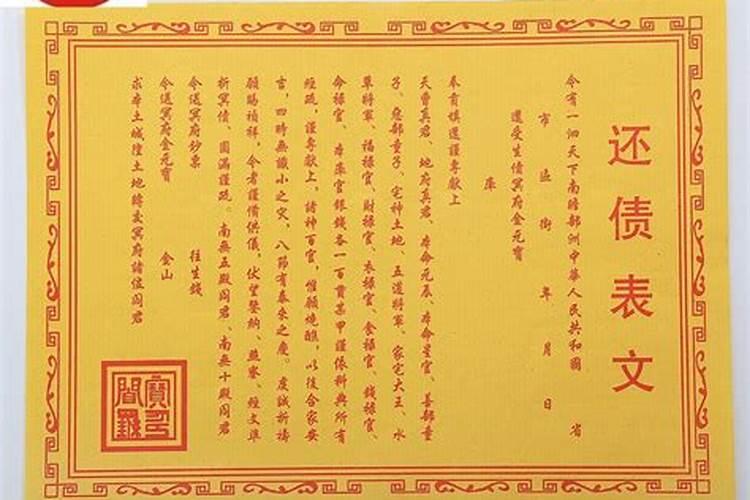 还债表文
今有一泗天下南瞻部洲中華人民共和國 省
市 區 街 年 月 日
還受生債冥府金元寶
庫
奉有填還謹專獻上
天曹真君、地府真君、本命元辰、本命星官、善部童
子、惡部童子、宅神土地、五道將軍、家宅大王、水
草將軍、福禄官、財禄官、衣禄官、食禄官、錢禄官、
命禄官、本庫官銀錢各一百貫某甲謹依科典所有
經疏，謹專獻上，諸神百官，惟願燒醮，以後合家安
吉，四時無讖小之灾，八節有泰來之慶。虔誠祈禱
願賜禎祥，令者謹備供儀，伏望鑒納、燕寥、經文準
折冥債、圓滿謹疏。南無五殿阎君、南無十殿阎君
令送冥府鈔票 往生錢
令送冥府金元寶 金山
求本土城隍土地轉交冥府諸位阎君